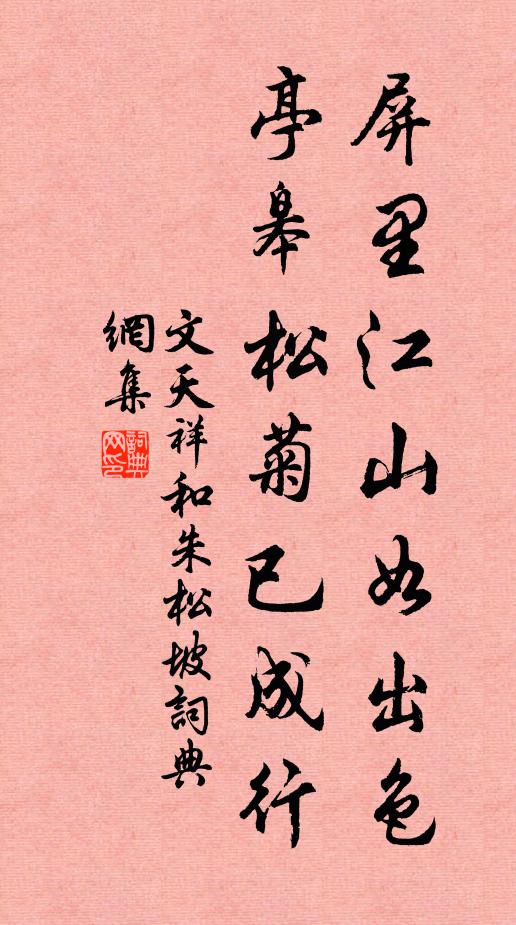 屏里江山如出色
亭皋松菊已成行
文天祥和朱松坡詞典
網集
詞典
网印